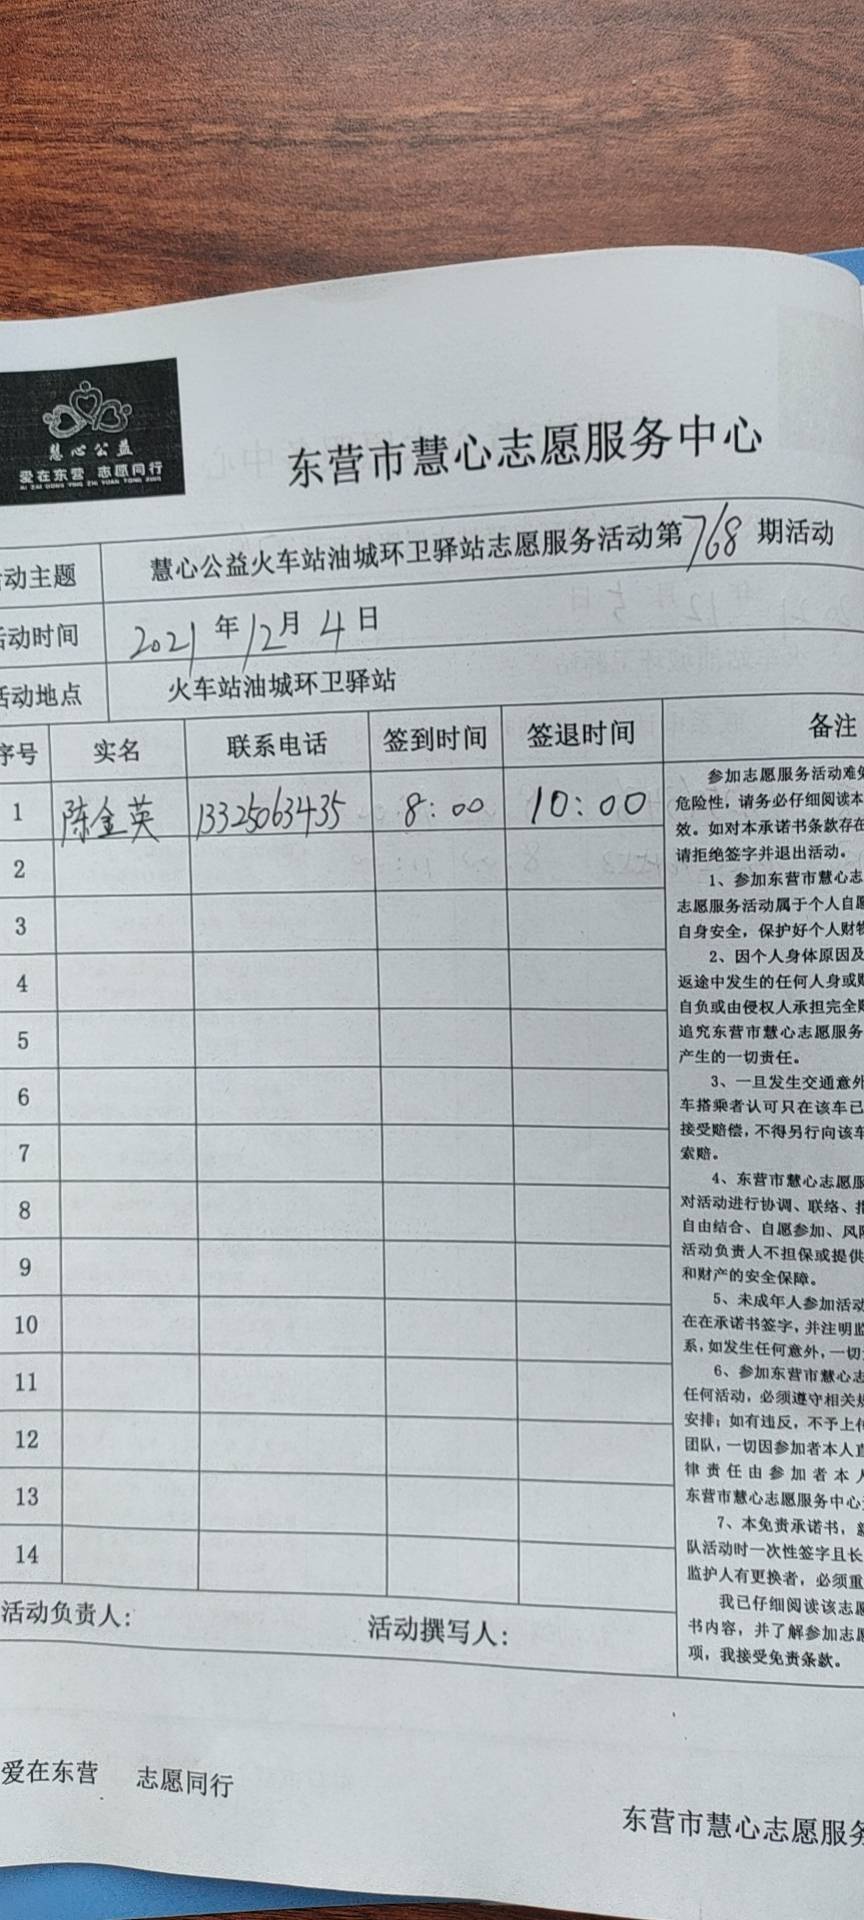 慧心公益
爱在东营 志愿同行
AI ZAI DONG YING ZHI YUAN TONG XING
东营市慧心志愿服务中心
活动主题 慧心公益火车站油城环卫驿站志愿服务活动第768期活动
活动时间 2021年12月4日
活动地点 火车站油城环卫驿站
序号 实名 联系电话 签到时间 签退时间 备注
1 陈金英 13325063435 8:00 10:00
2
3
4
5
6
7
8
9
10
11
12
13
14
参加志愿服务活动难免
危险性,请务必仔细阅读本
效。如对本承诺书条款存在
请拒绝签字并退出活动。
1、参加东营市慧心志
志愿服务活动属于个人自愿
自身安全,保护好个人财物
2、因个人身体原因及
返途中发生的任何人身或财
自负或由侵权人承担完全赔
追究东营市慧心志愿服务
产生的一切责任。
3、一旦发生交通意外
车搭乘者认可只在该车已
接受赔偿,不得另行向该车
索赔。
4、东营市慧心志愿服
对活动进行协调、联络、指
自由结合、自愿参加、风险
活动负责人不担保或提供
和财产的安全保障。
5、未成年人参加活动
在在承诺书签字,并注明监
系,如发生任何意外,一切
6、参加东营市慧心志
任何活动,必须遵守相关规
安排;如有违反,不予上
团队,一切因参加者本人直
律责任由参加者本人
东营市慧心志愿服务中心
7、本免责承诺书,
队活动时一次性签字且长
监护人有更换者,必须重
我已仔细阅读该志愿
书内容,并了解参加志愿
项,我接受免责条款。
活动负责人: 活动撰写人:
爱在东营 志愿同行
东营市慧心志愿服务